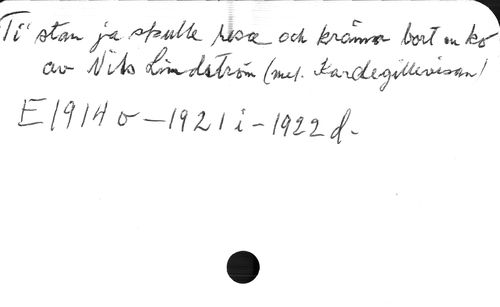 Ti' stan ja skulle resa och krämar bort en ko
av Nils Lindström (mel. Kardegillevisan)
E 1914 o - 1921 i - 1922 d.